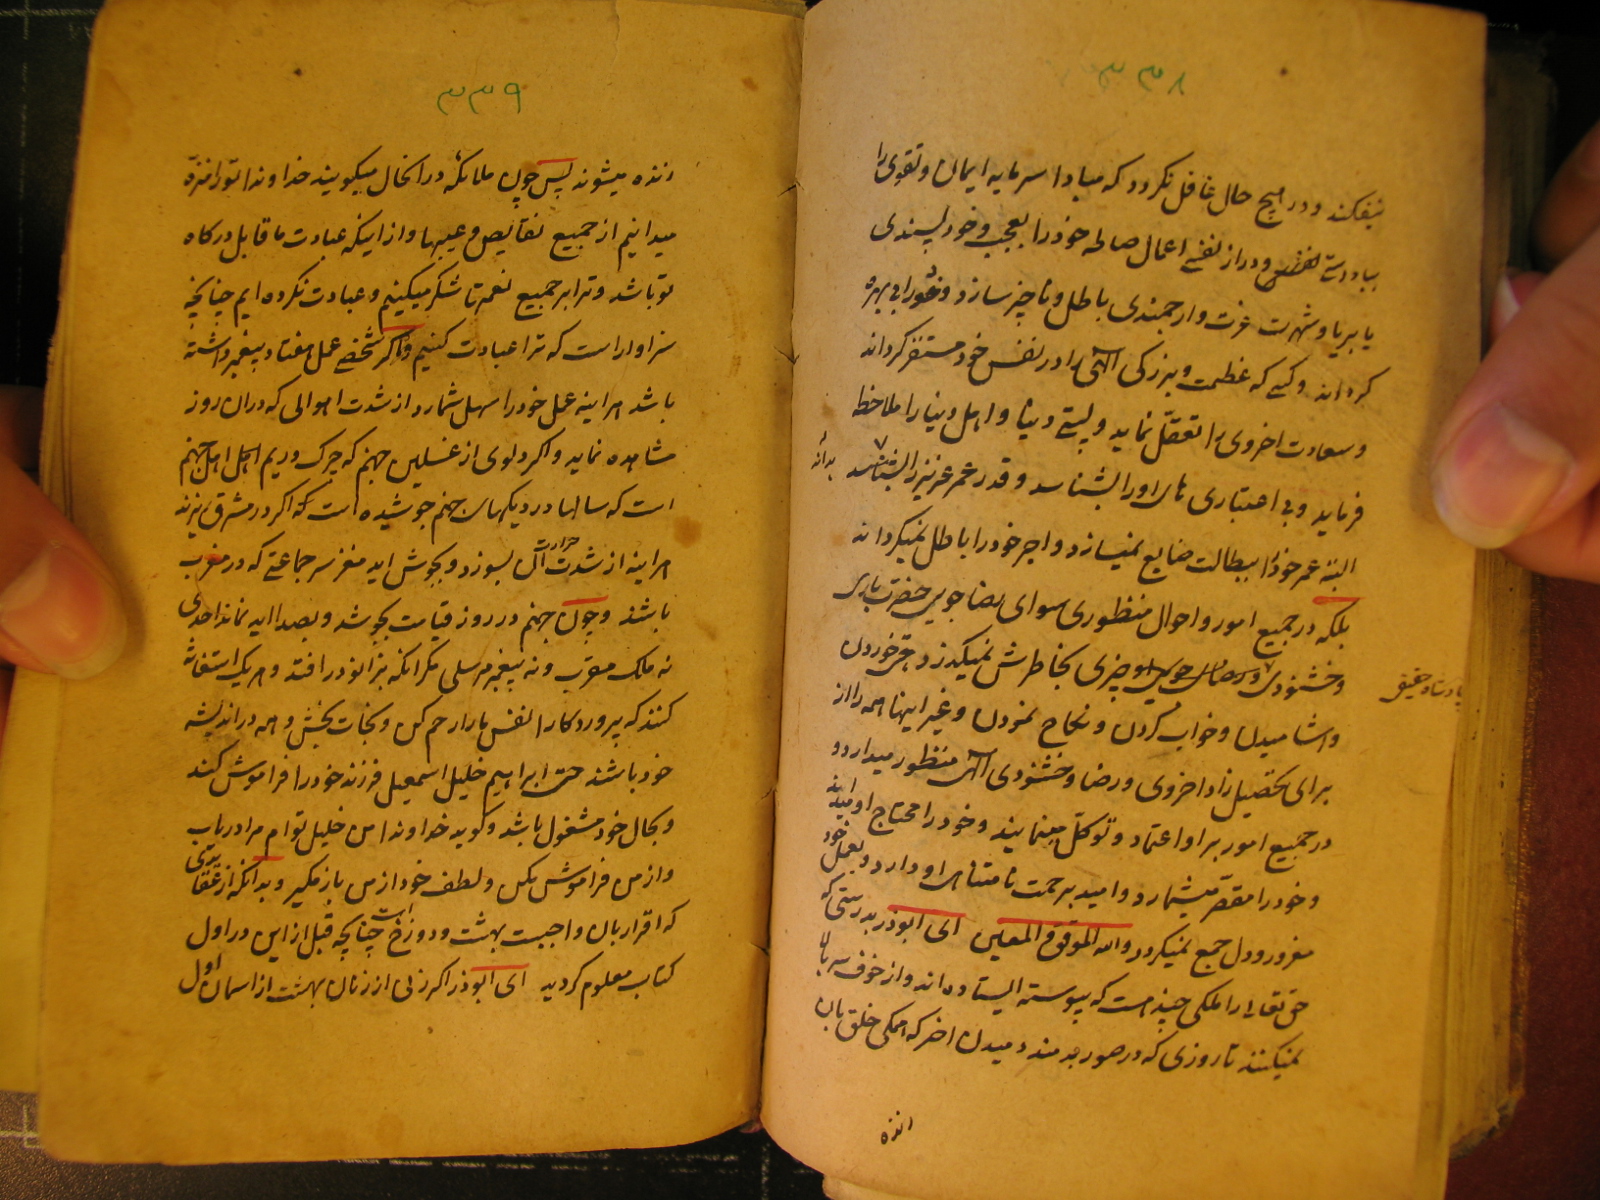 ۳۳۸
نیفکند و در هیچ حال غافل نکردد که مبادا سرمایه ایمان و تقوی را
بباد دهد و دراز نفسی اعمال صالحه خود را بعجب و خودپسندی
یا بریا و شهرت عزت و ارجمندی باطل و ناچیز سازد و خود را بی بهره
کرداند و کسی که عظمت و بزرکی الهی را در نفس خود مستقر کرداند
و سعادت اخروی را تعقل نماید و پستی دنیا و اهل دنیا را ملاحظه
فرماید و بی اعتباری های او را بشناسد و قدر عمر عزیز را بشناسد بداند
البته عمر خود را ببطالت ضایع نمیسازد و اجر خود را باطل نمیکرداند
بلکه در جمیع امور و احوال منظوری سوای رضا جویی حضرت باری
و خشنودی پادشاه حقیقی چیزی بخاطرش نمیکذرد حتی خوردن
و اشامیدن و خواب کردن و نکاح نمودن و غیر اینها همه را از
برای تحصیل زاد اخروی و رضا و خشنودی الهی منظور میدارد و
در جمیع امور بر او اعتماد و توکل مینماید و خود را محتاج او میداند
و خود را مقصر میشمارد و امید برحمت نامتناهی او دارد و بعمل خود
مغرور و دل جمع نمیکردد والله الموفق المعین ای ابوذر بدرستی که
حق تعالی را ملکی چند هست که پیوسته ایستاده اند و از خوف سر بالا
نمیکنند تا روزی که در صور بدمند دمیدن اخر که همکی خلق بان
زنده
۳۳۹
زنده میشوند پس چون ملائکه در انحال میکویند خداوندا تو را منزه
میدانیم از جمیع نقایص و عیبها و از اینکه عبادت ما قابل درکاه
تو باشد و ترا بر جمیع نعمتها شکر میکنیم و عبادت نکرده ایم چنانچه
سزاوار است که ترا عبادت کنیم و اکر شخصی عمل هفتاد پیغمبر داشته
باشد هراینه عمل خود را سهل شمارد از شدت اهوالی که دران روز
مشاهده نماید و اکر دلوی از غسلین جهنم که چرک و ریم اهل جهنم
است که سالها در دیکهای جهنم جوشیده است که اکر در مشرق بریزند
هراینه از شدت حرارت آن بسوزد و بجوش اید مغز سر جماعتی که در مغرب
باشند و چون جهنم در روز قیامت بجوشد و بصدا اید نماند احدی
نه ملک مقرب و نه پیغمبر مرسلی مکر انکه بزانو در افتد و هریک استغاثه
کنند که پروردکارا نفس ما را رحم کن و نجات بخش و همه در اندیشه
خود باشند حتی ابراهیم خلیل اسمعیل فرزند خود را فراموش کند
و بحال خود مشغول باشد و کوید خداوندا من خلیل توام مرا دریاب
و از من فراموش مکن و لطف خود از من باز مکیر و بدانکه از عقایدی
که اقرار بان واجبست بهشت و دوزخ است چنانچه قبل ازاین در اول
کتاب معلوم کردید ای ابوذر اکر زنی از زنان بهشت از اسمان اول